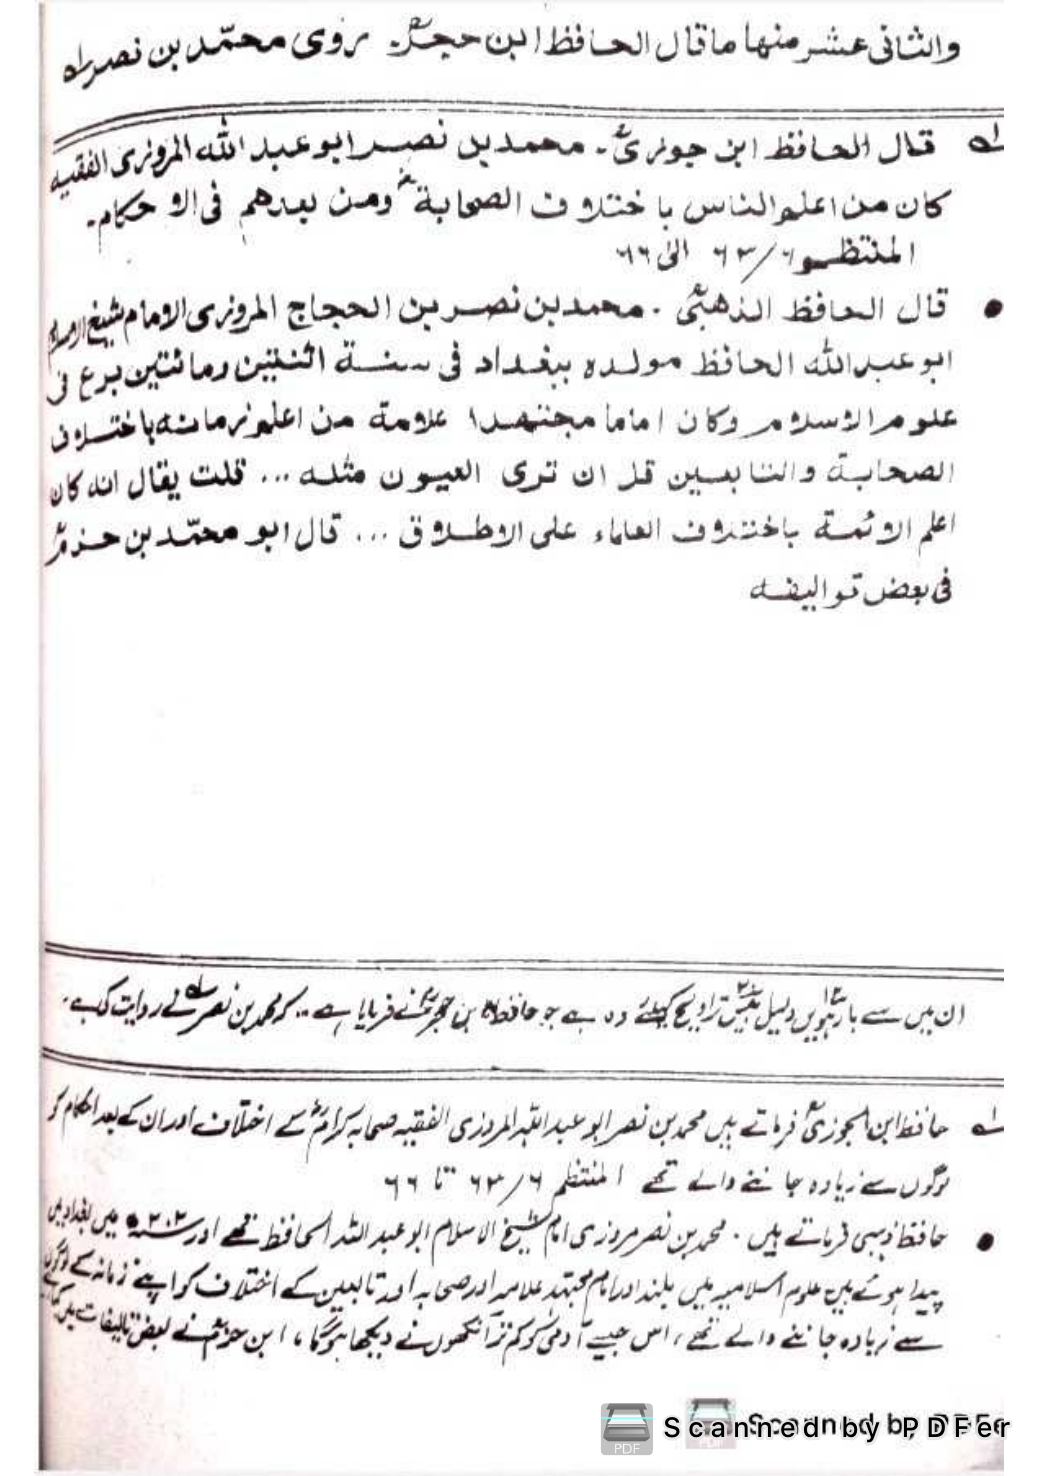 والثانی عشر منها ما قال الحافظ ابن حجرؒ۔ روی محمّد بن نصر لہ
لہ قال الحافظ ابن جوزیؒ۔ محمد بن نصر ابو عبد اللّٰه المروزی الفقیه
کان من اعلم الناس باختلاف الصحابة ومن بعدهم فی الاحکام۔
المنتظم ۶/۶۳ الیٰ ۶۶
● قال الحافظ الذهبیؒ۔ محمد بن نصر بن الحجاج المروزی الامام شیخ الاسلام
ابو عبد اللّٰه الحافظ مولده ببغداد فی سنة اثنتین ومائتین برع فی
علوم الاسلام وکان اماما مجتهدا علامة من اعلم زمانه باختلاف
الصحابة والتابعین قل ان تری العیون مثله ... قلت یقال انه کان
اعلم الائمة باختلاف العلماء علی الاطلاق ... قال ابو محمّد بن حزمؒ
فی بعض توالیفه
ان میں سے بارہویں دلیل بیس تراویح کیلئے وہ ہے جو حافظ ابن حجرؒ نے فرمایا ہے .. کہ محمد بن نصر لہ نے روایت کی ہے۔
لہ حافظ ابن الجوزیؒ فرماتے ہیں محمد بن نصر ابو عبد اللہ المروزی الفقیہ صحابہ کرامؓ کے اختلاف اور ان کے بعد احکام کو
لوگوں سے زیادہ جاننے والے تھے المنتظم ۶/۶۳ تا ۶۶
● حافظ ذہبی فرماتے ہیں۔ محمد بن نصر مروزی امام شیخ الاسلام ابو عبد اللہ الحافظ تھے اور سنہ ۲۰۲ھ میں بغداد میں
پیدا ہوئے ہیں علوم اسلامیہ میں بلند اور امام مجتہد علامہ اور صحابہ اور تابعین کے اختلاف کو اپنے زمانہ کے لوگوں
سے زیادہ جاننے والے تھے، اس جیسے آدمی کو کم تر آنکھوں نے دیکھا ہوگا، ابن حزمؒ نے بعض تالیفات میں
Scanned by PDFer